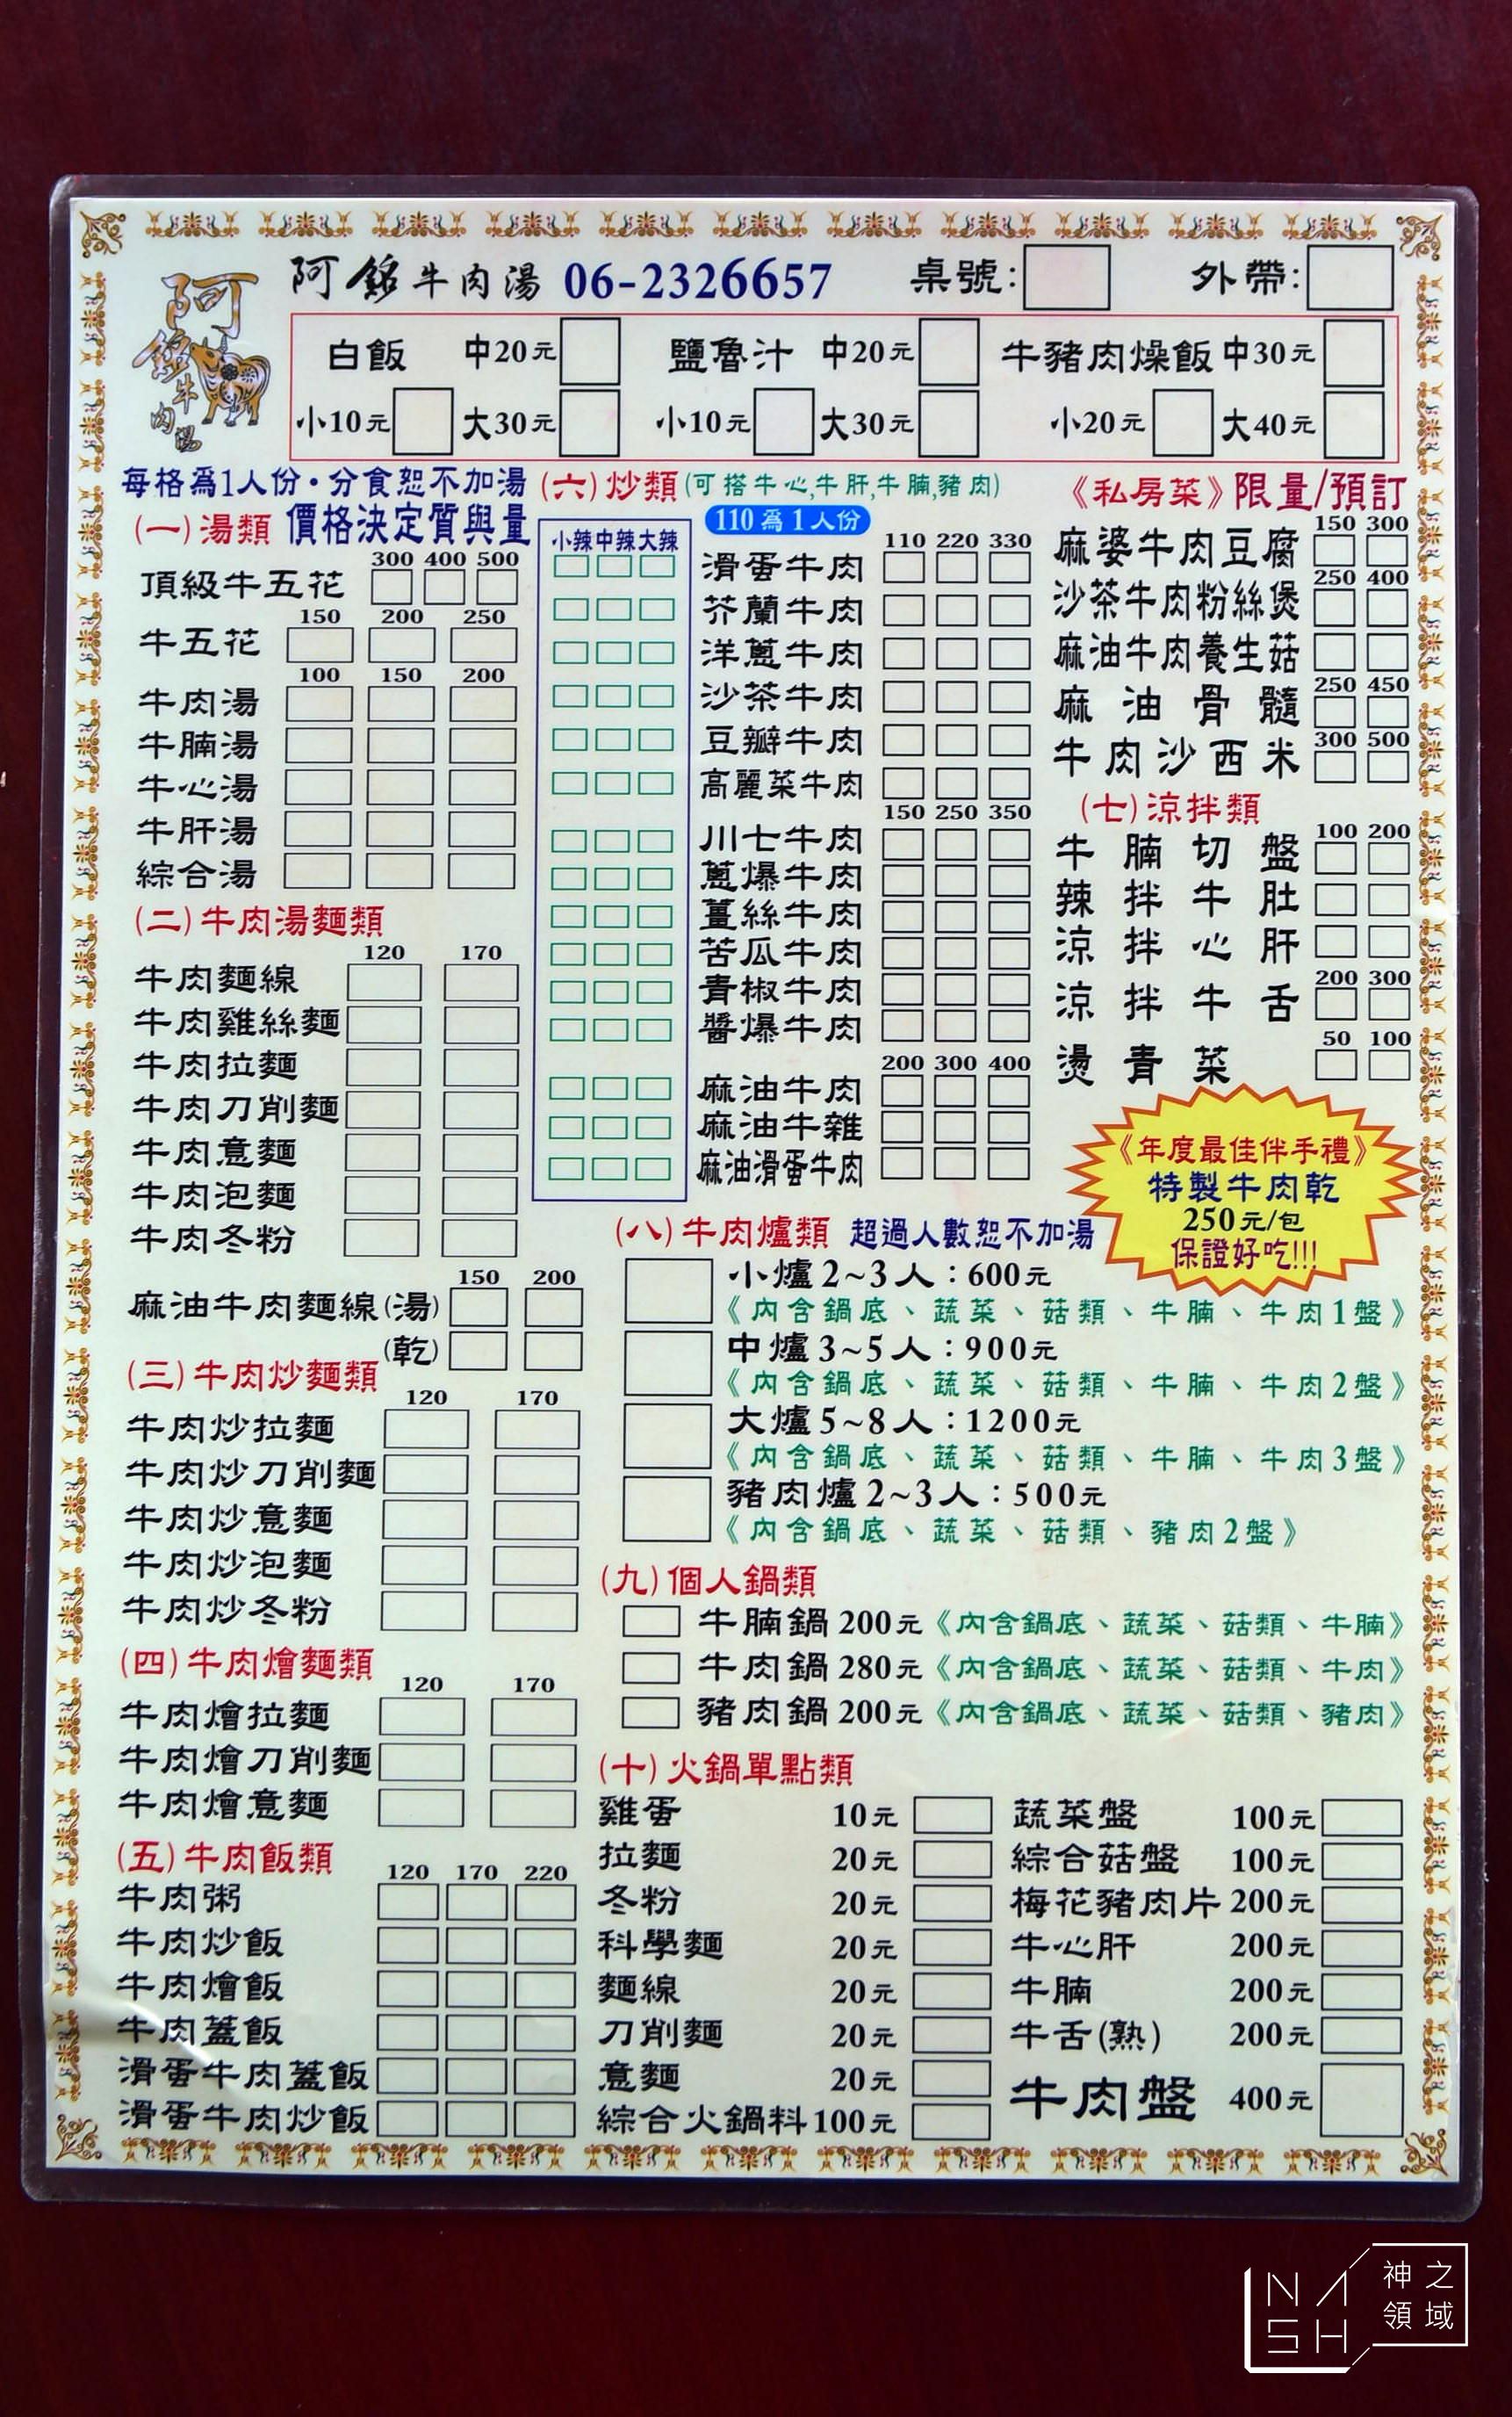 阿銘牛肉湯 06-2326657 桌號: 外帶:
阿銘牛肉湯
白飯 中20元 鹽魯汁 中20元 牛豬肉燥飯 中30元
小10元 大30元 小10元 大30元 小20元 大40元
每格為1人份·分食恕不加湯
(一)湯類 價格決定質與量
300 400 500
頂級牛五花
150 200 250
牛五花
100 150 200
牛肉湯
牛腩湯
牛心湯
牛肝湯
綜合湯
(二)牛肉湯麵類
120 170
牛肉麵線
牛肉雞絲麵
牛肉拉麵
牛肉刀削麵
牛肉意麵
牛肉泡麵
牛肉冬粉
150 200
麻油牛肉麵線(湯)
(乾)
(三)牛肉炒麵類
120 170
牛肉炒拉麵
牛肉炒刀削麵
牛肉炒意麵
牛肉炒泡麵
牛肉炒冬粉
(四)牛肉燴麵類
120 170
牛肉燴拉麵
牛肉燴刀削麵
牛肉燴意麵
(五)牛肉飯類
120 170 220
牛肉粥
牛肉炒飯
牛肉燴飯
牛肉蓋飯
滑蛋牛肉蓋飯
滑蛋牛肉炒飯
(六)炒類(可搭牛心,牛肝,牛腩,豬肉)
110為1人份
小辣 中辣 大辣
110 220 330
滑蛋牛肉
芥蘭牛肉
洋蔥牛肉
沙茶牛肉
豆瓣牛肉
高麗菜牛肉
150 250 350
川七牛肉
蔥爆牛肉
薑絲牛肉
苦瓜牛肉
青椒牛肉
醬爆牛肉
200 300 400
麻油牛肉
麻油牛雜
麻油滑蛋牛肉
《私房菜》限量/預訂
150 300
麻婆牛肉豆腐
250 400
沙茶牛肉粉絲煲
麻油牛肉養生菇
250 450
麻油骨髓
300 500
牛肉沙西米
(七)涼拌類
100 200
牛腩切盤
辣拌牛肚
涼拌心肝
200 300
涼拌牛舌
50 100
燙青菜
《年度最佳伴手禮》
特製牛肉乾
250元/包
保證好吃!!!
(八)牛肉爐類 超過人數恕不加湯
小爐2~3人:600元
《內含鍋底、蔬菜、菇類、牛腩、牛肉1盤》
中爐3~5人:900元
《內含鍋底、蔬菜、菇類、牛腩、牛肉2盤》
大爐5~8人:1200元
《內含鍋底、蔬菜、菇類、牛腩、牛肉3盤》
豬肉爐2~3人:500元
《內含鍋底、蔬菜、菇類、豬肉2盤》
(九)個人鍋類
牛腩鍋200元《內含鍋底、蔬菜、菇類、牛腩》
牛肉鍋280元《內含鍋底、蔬菜、菇類、牛肉》
豬肉鍋200元《內含鍋底、蔬菜、菇類、豬肉》
(十)火鍋單點類
雞蛋 10元
拉麵 20元
冬粉 20元
科學麵 20元
麵線 20元
刀削麵 20元
意麵 20元
綜合火鍋料100元
蔬菜盤 100元
綜合菇盤 100元
梅花豬肉片 200元
牛心肝 200元
牛腩 200元
牛舌(熟) 200元
牛肉盤 400元
NASH
神之
領域